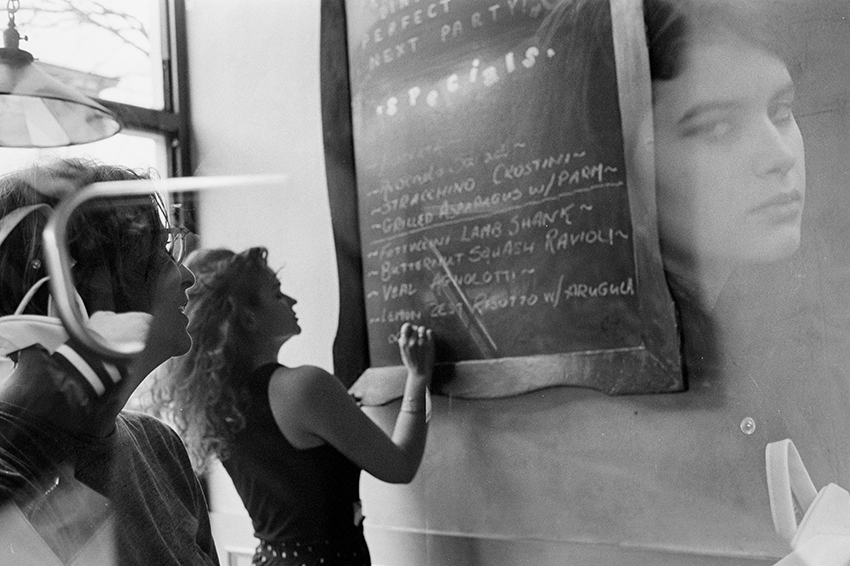 PERFECT
NEXT PARTY!
Specials.
~STRACCHINO CROSTINI~
~GRILLED ASPARAGUS W/ PARM~
~FETTUCCINI LAMB SHANK~
~BUTTERNUT SQUASH RAVIOLI~
~VEAL AGNOLOTTI~
~LEMON ZEST RISOTTO W/ ARUGULA